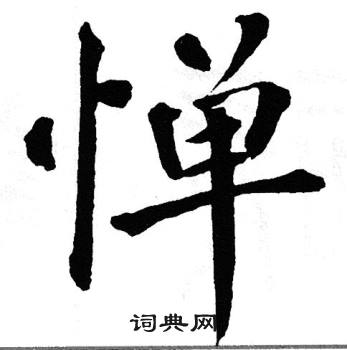 惮
词典网